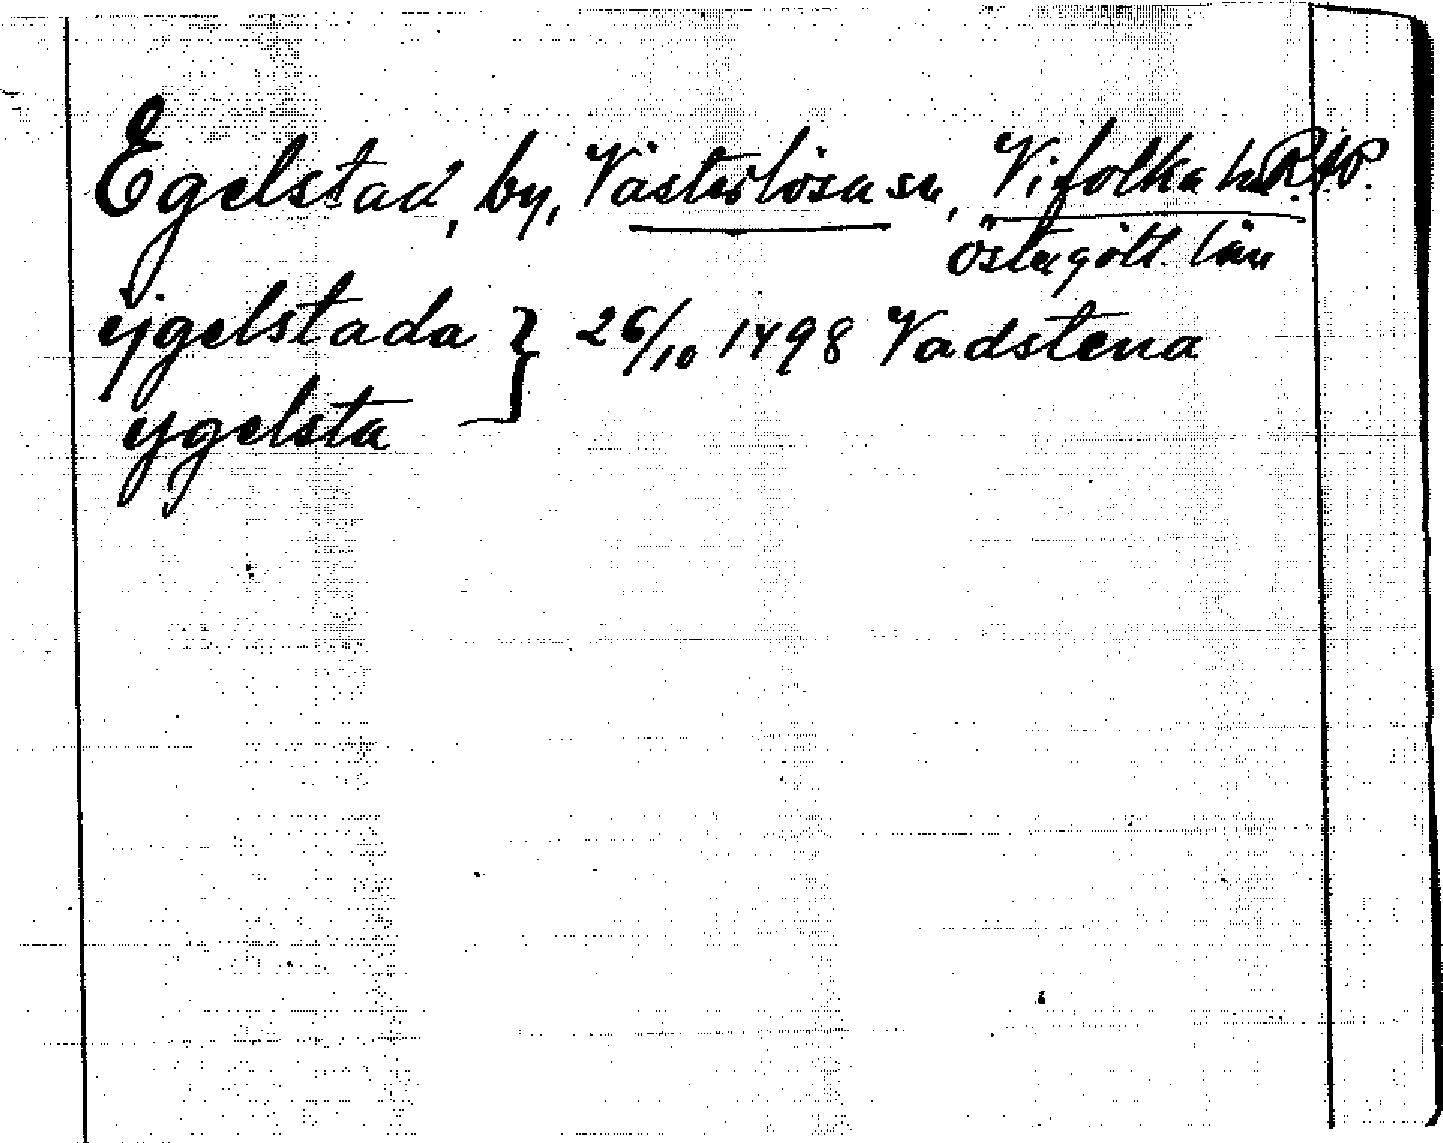 Egelstad, by, Västerlösa sn, Vifolka hd R.A.P.
Östergötl. län
ijgelstada } 26/10 1498 Vadstena
ygelsta